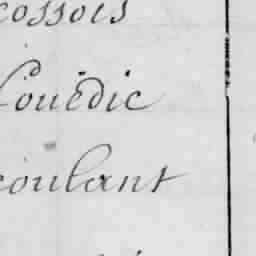 cossois
Couëdic
coulant